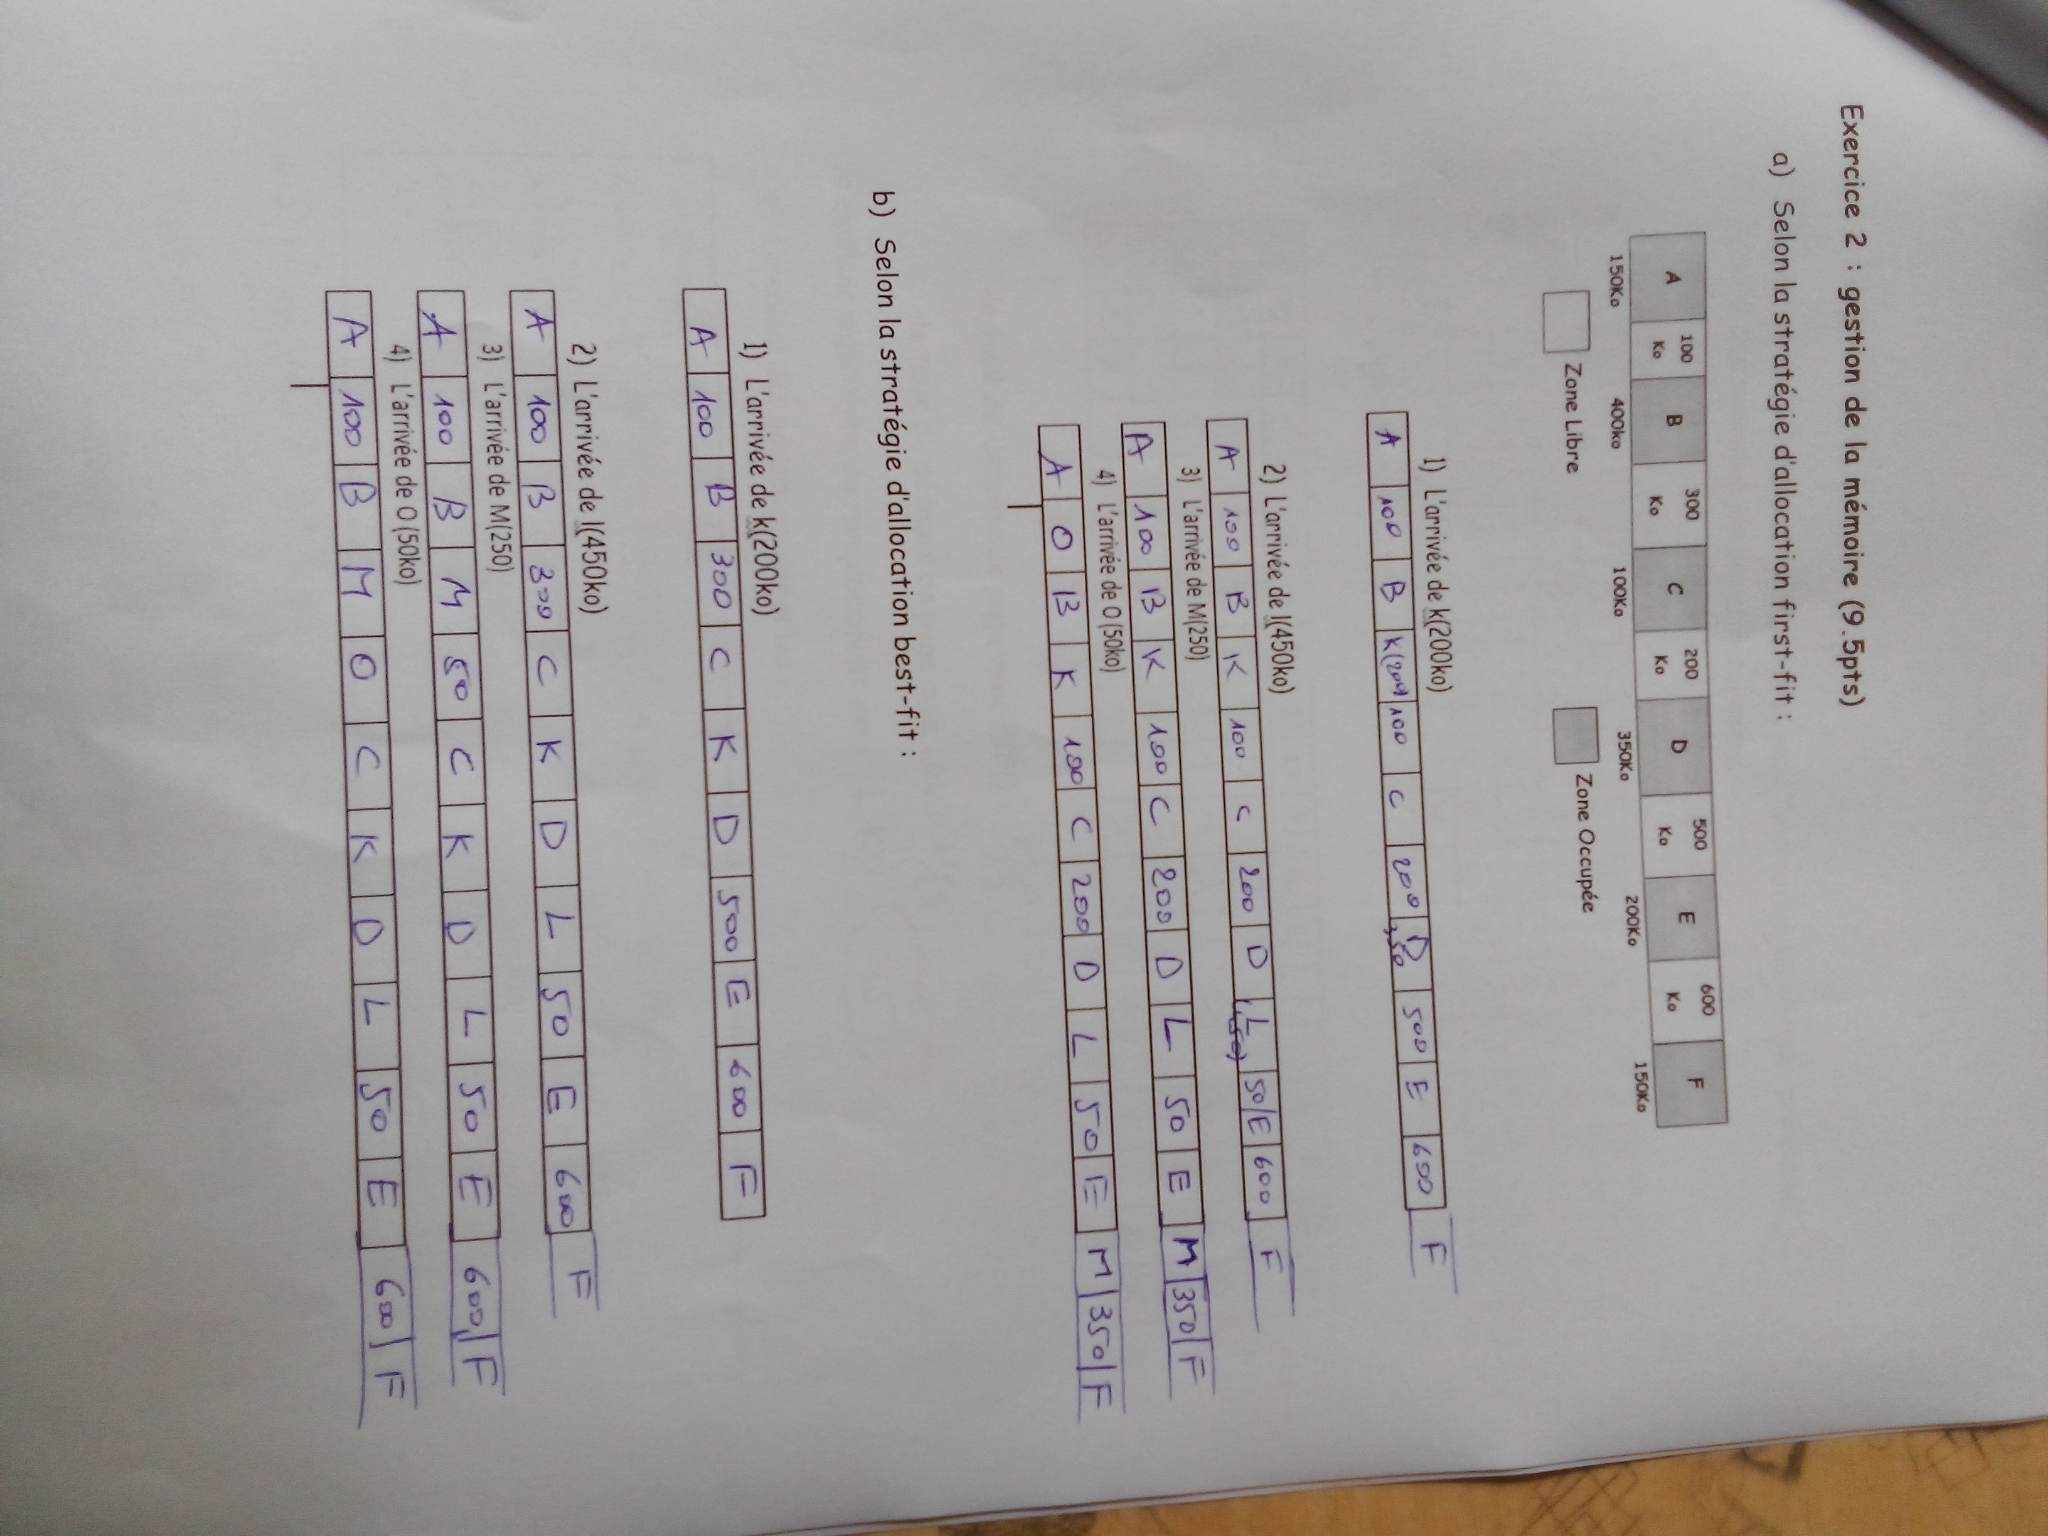 Exercice 2 : gestion de la mémoire (9.5pts)
a) Selon la stratégie d'allocation first-fit :
A 100 Ko B 300 Ko C 200 Ko D 500 Ko E 600 Ko F
150Ko 400ko 100Ko 350Ko 200Ko 150Ko
Zone Libre Zone Occupée
1) L'arrivée de k(200ko)
A 100 B K(200) 100 C 200 D 500 E 600 F
2) L'arrivée de l(450ko)
A 100 B K 100 C 200 D L 50 E 600 F
3) L'arrivée de M(250)
A 100 B K 100 C 200 D L 50 E M 350 F
4) L'arrivée de O (50ko)
A O B K 100 C 200 D L 50 E M 350 F
b) Selon la stratégie d'allocation best-fit :
1) L'arrivée de k(200ko)
A 100 B 300 C K D 500 E 600 F
2) L'arrivée de l(450ko)
A 100 B 300 C K D L 50 E 600 F
3) L'arrivée de M(250)
A 100 B M 50 C K D L 50 E 600 F
4) L'arrivée de O (50ko)
A 100 B M O C K D L 50 E 600 F